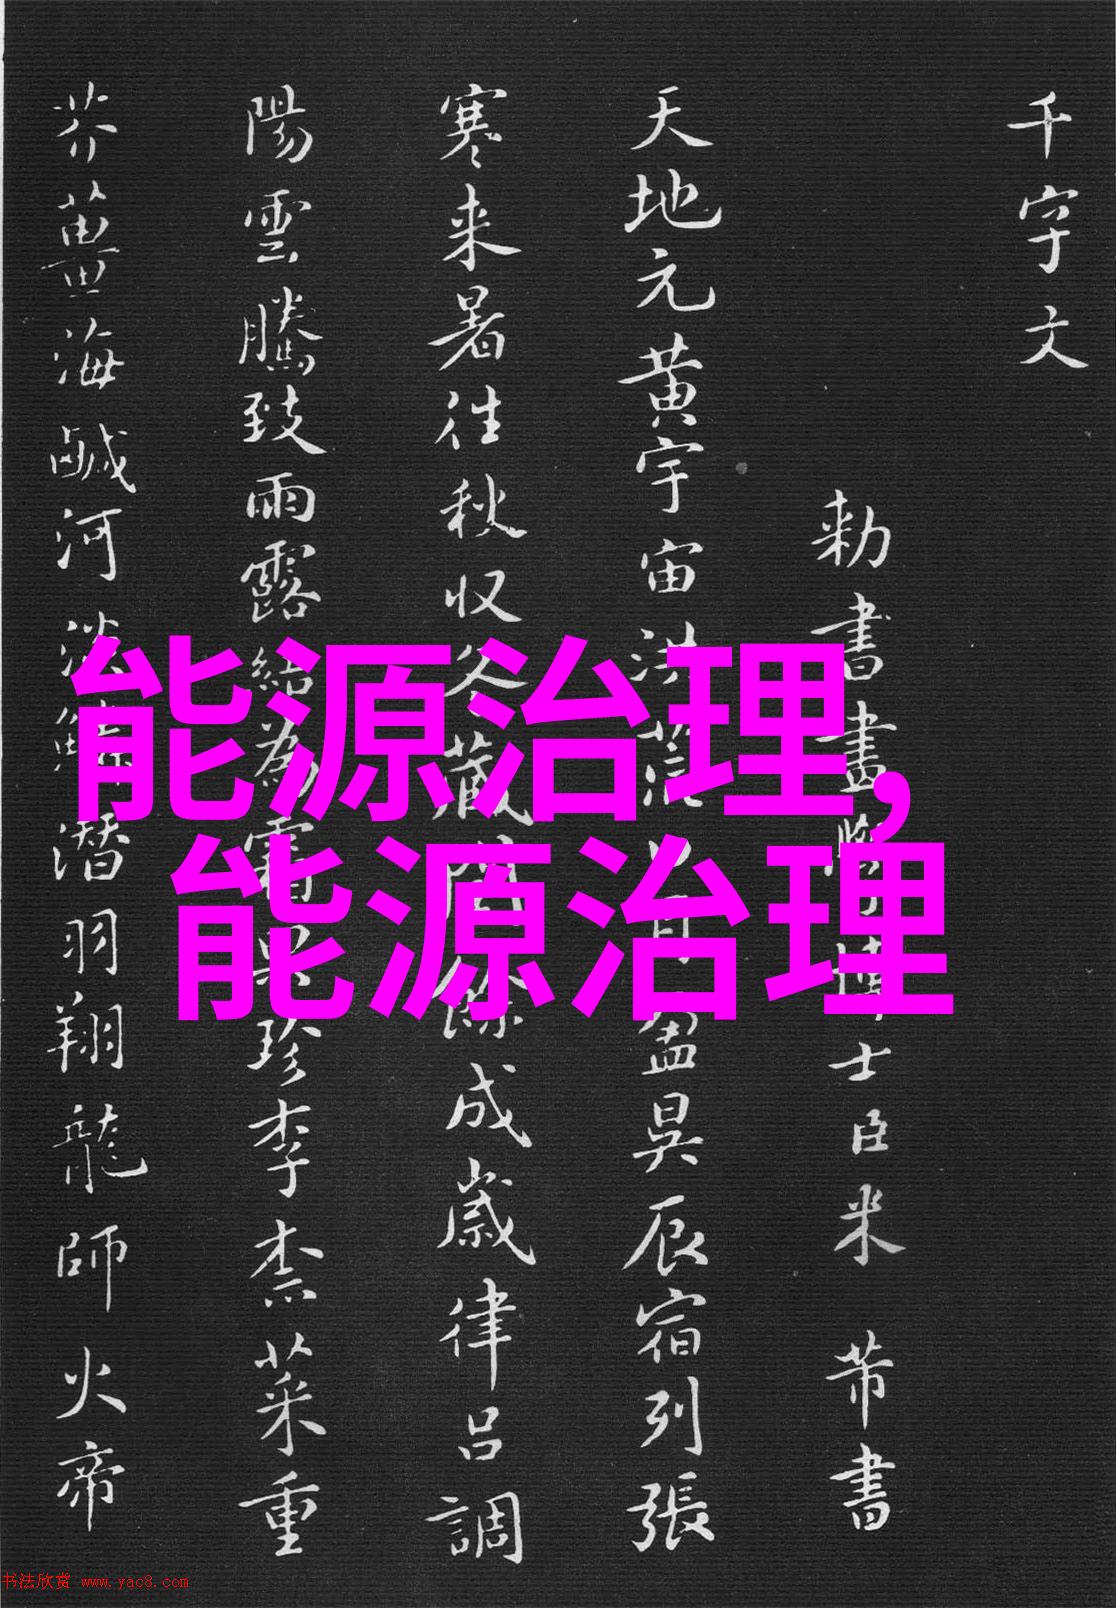 千字文
勅書畫學博士臣米芾書
天地元黄宇宙洪荒日月盈昃辰宿列張
寒来暑往秋収冬蔵閏餘成嵗律吕調
陽雲騰致雨露結為霜果珍李柰菜重
芥薑海鹹河淡鱗潛羽翔龍師火帝
能源治理,
能源治理
书法欣赏 www.yac8.com